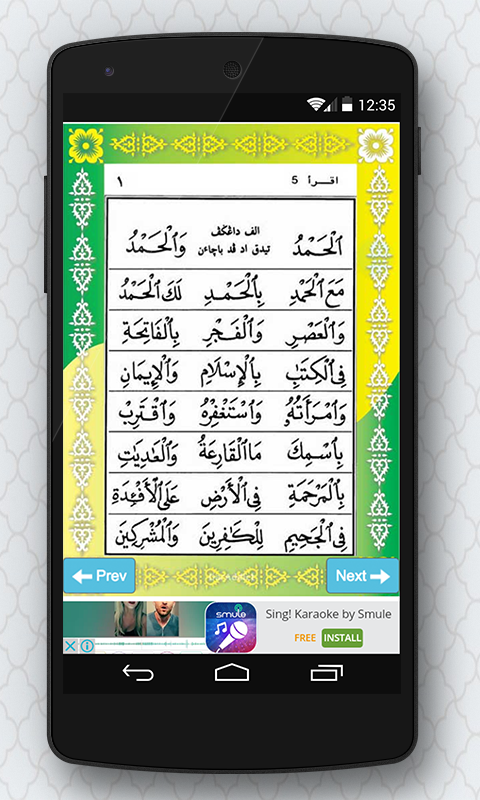 12:35
اقرأ 5 ١
اَلْحَمْدُ الف دافكف وَالْحَمْدُ
تيدق اد ڤد باچاءن
مَعَ الْحَمْدِ بِالْحَمْدِ لَكَ الْحَمْدُ
وَالْعَصْرِ وَالْفَجْرِ بِالْفَاتِحَةِ
فِى الْكِتٰبِ بِالْإِسْلَامِ وَالْإِيمَانِ
وَامْرَأَتُهُۥ وَاسْتَغْفِرْهُ وَاقْتَرِبْ
بِاسْمِكَ مَاالْقَارِعَةُ وَالْعٰدِيٰتِ
بِالْمَرْحَمَةِ فِى الْأَرْضِ عَلَى الْأَفْئِدَةِ
فِى الْجَحِيمِ لِلْكٰفِرِينَ وَالْمُشْرِكِينَ
Prev Next
smule
Sing! Karaoke by Smule
FREE INSTALL